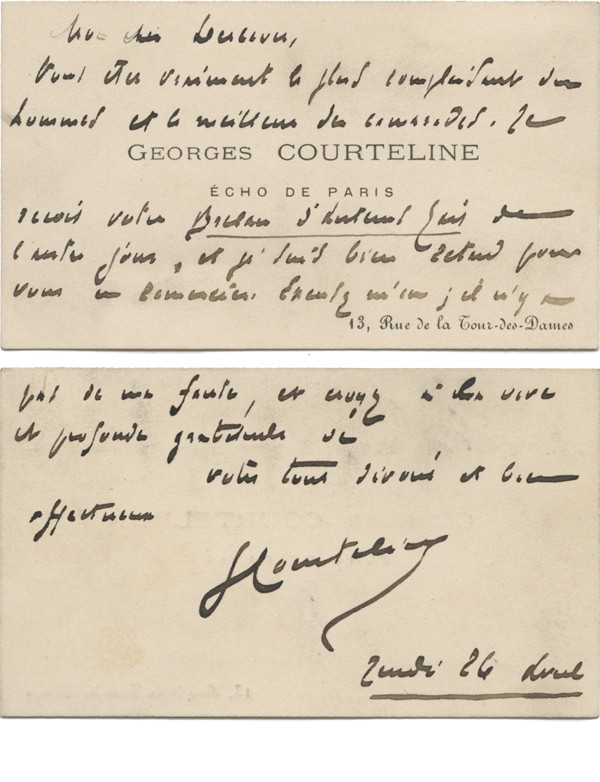 Mon cher
Vous êtes vraiment le plus complaisant des
hommes et le meilleur des camarades. Je
GEORGES COURTELINE
ÉCHO DE PARIS
reçois votre d'Auteuil de
l'autre jour, et je suis bien pour
vous en remercier. Excusez m'en ; il n'y a
13, Rue de la Tour-des-Dames
pas de ma faute, et croyez à la vive
et profonde gratitude de
votre tout dévoué et bien
affectueux
GCourteline
Jeudi 26 Avril